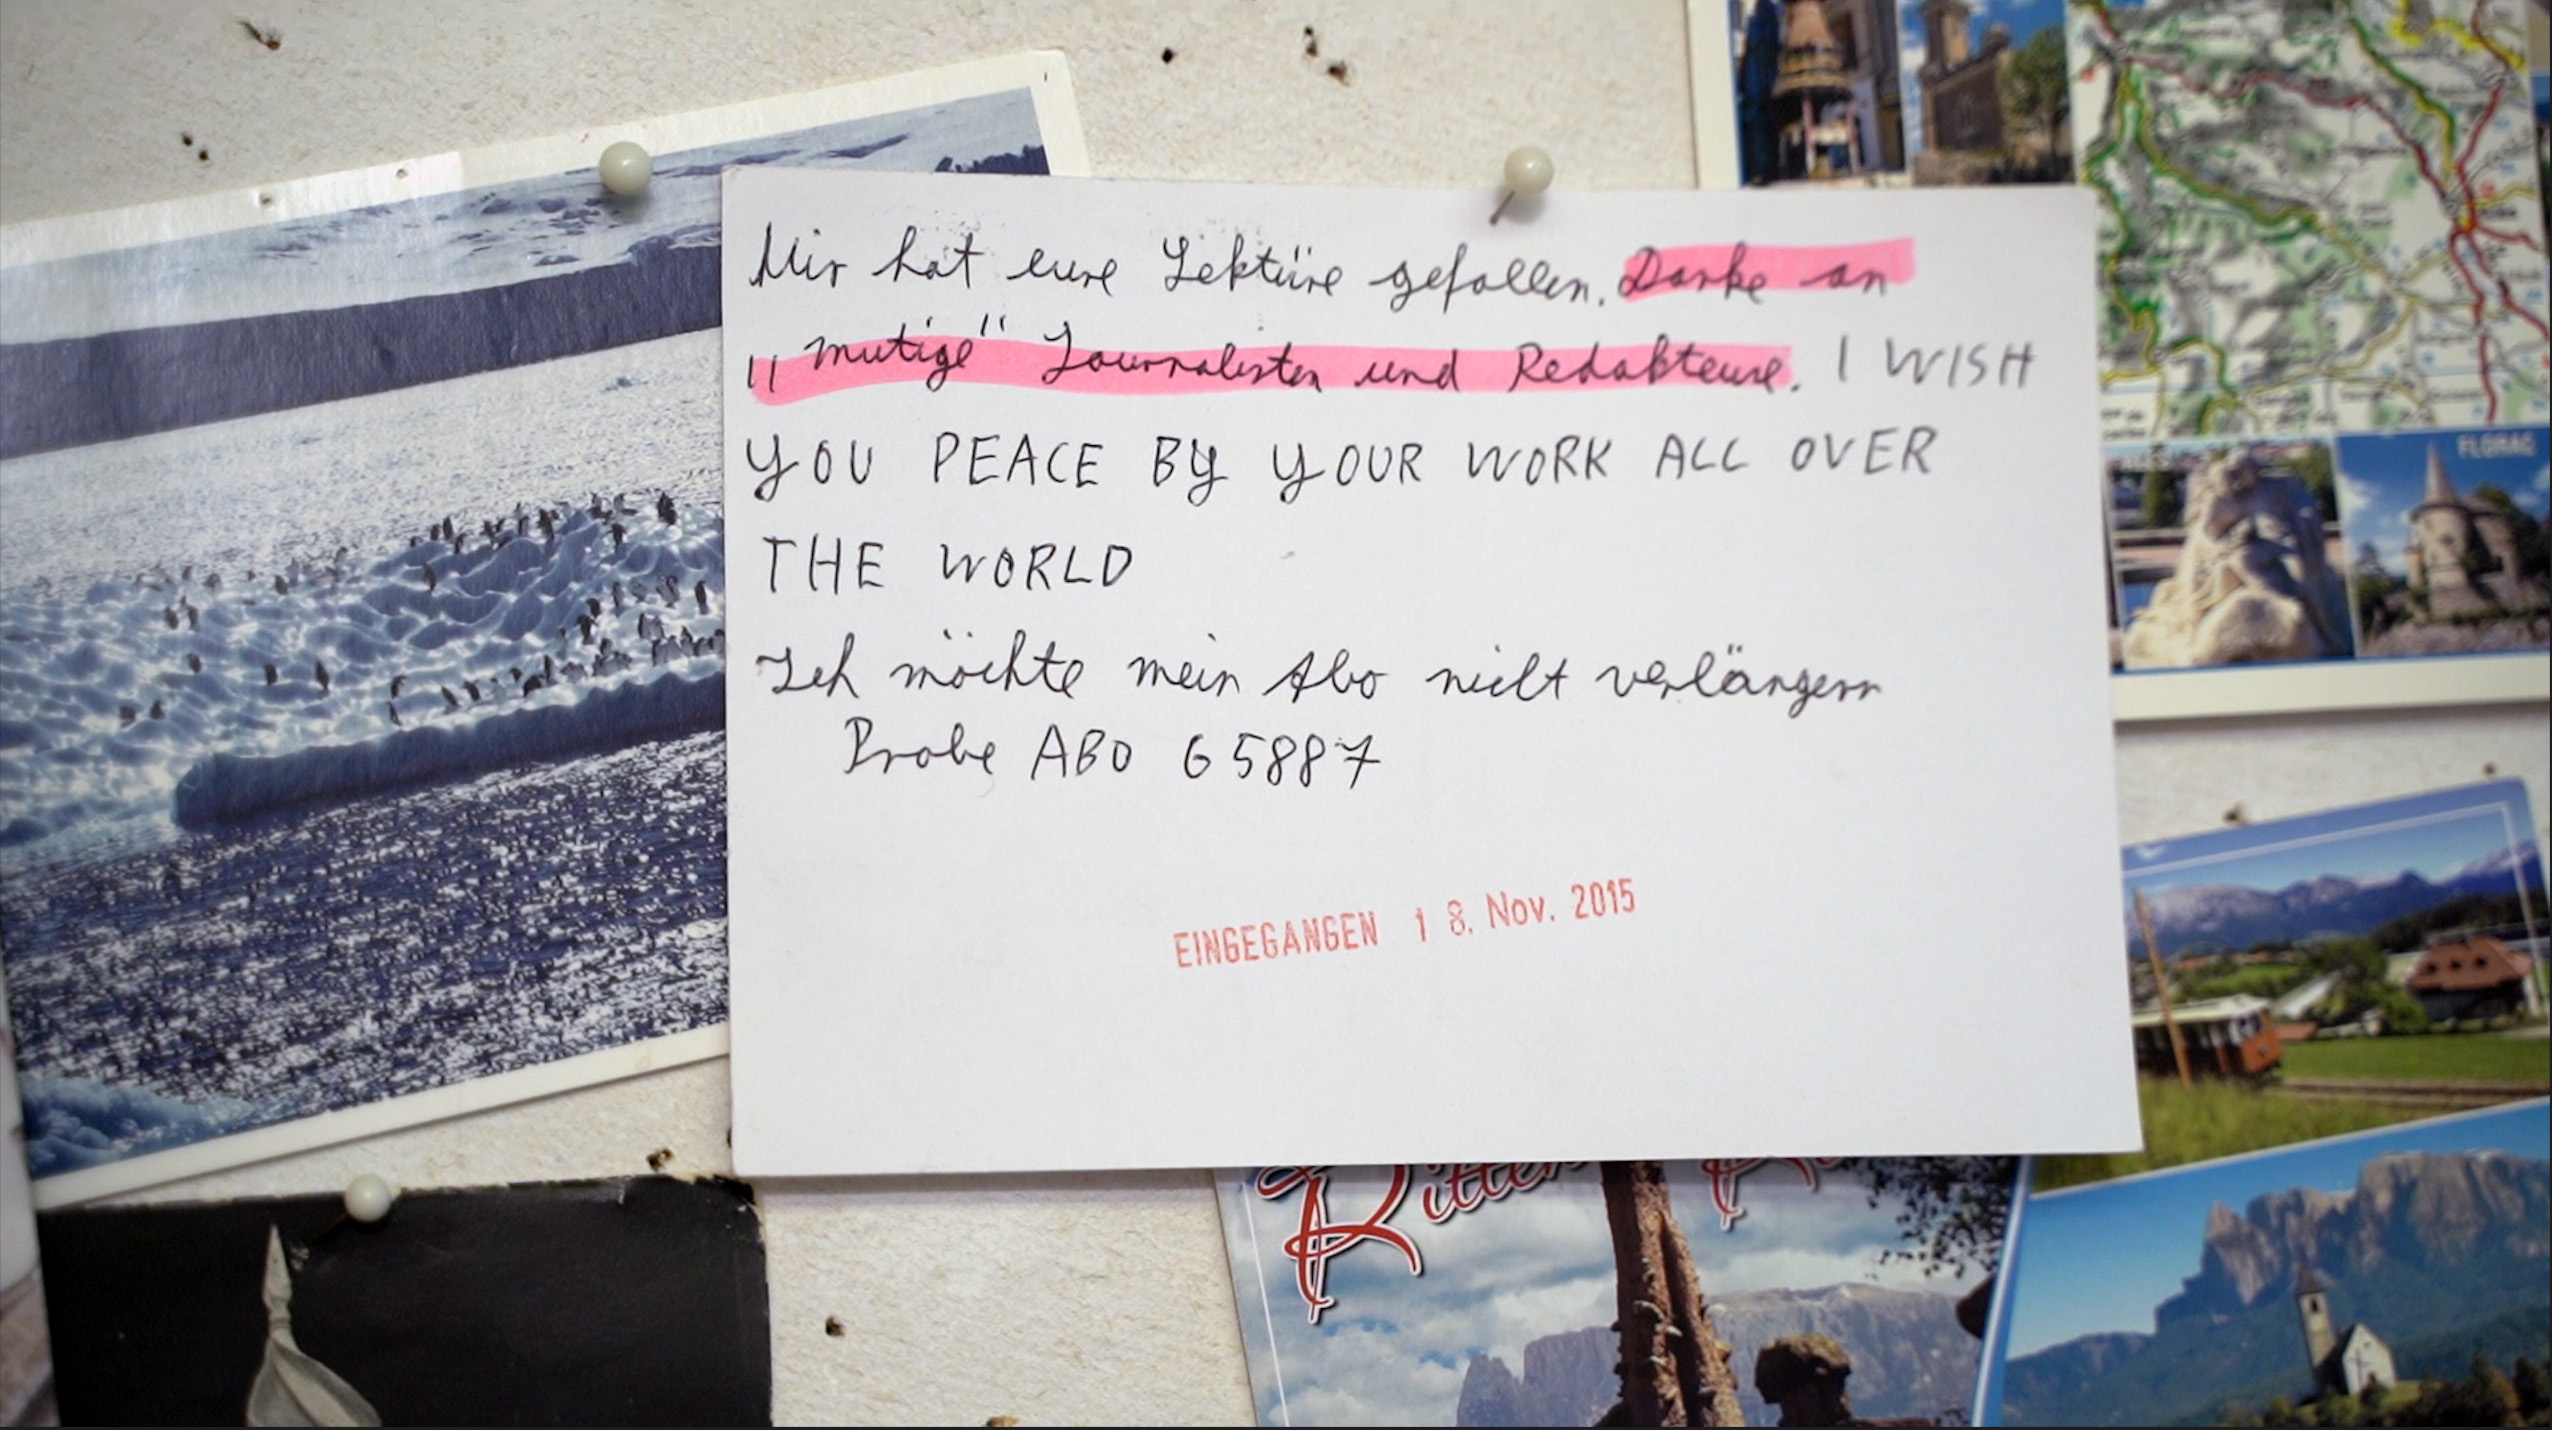 Mir hat eure Lektüre gefallen. Danke an
„mutige" Journalisten und Redakteure. I WISH
YOU PEACE BY YOUR WORK ALL OVER
THE WORLD
Ich möchte mein Abo nicht verlängern
Probe ABO 65887
EINGEGANGEN 18. Nov. 2015
FLORAC
Ritten